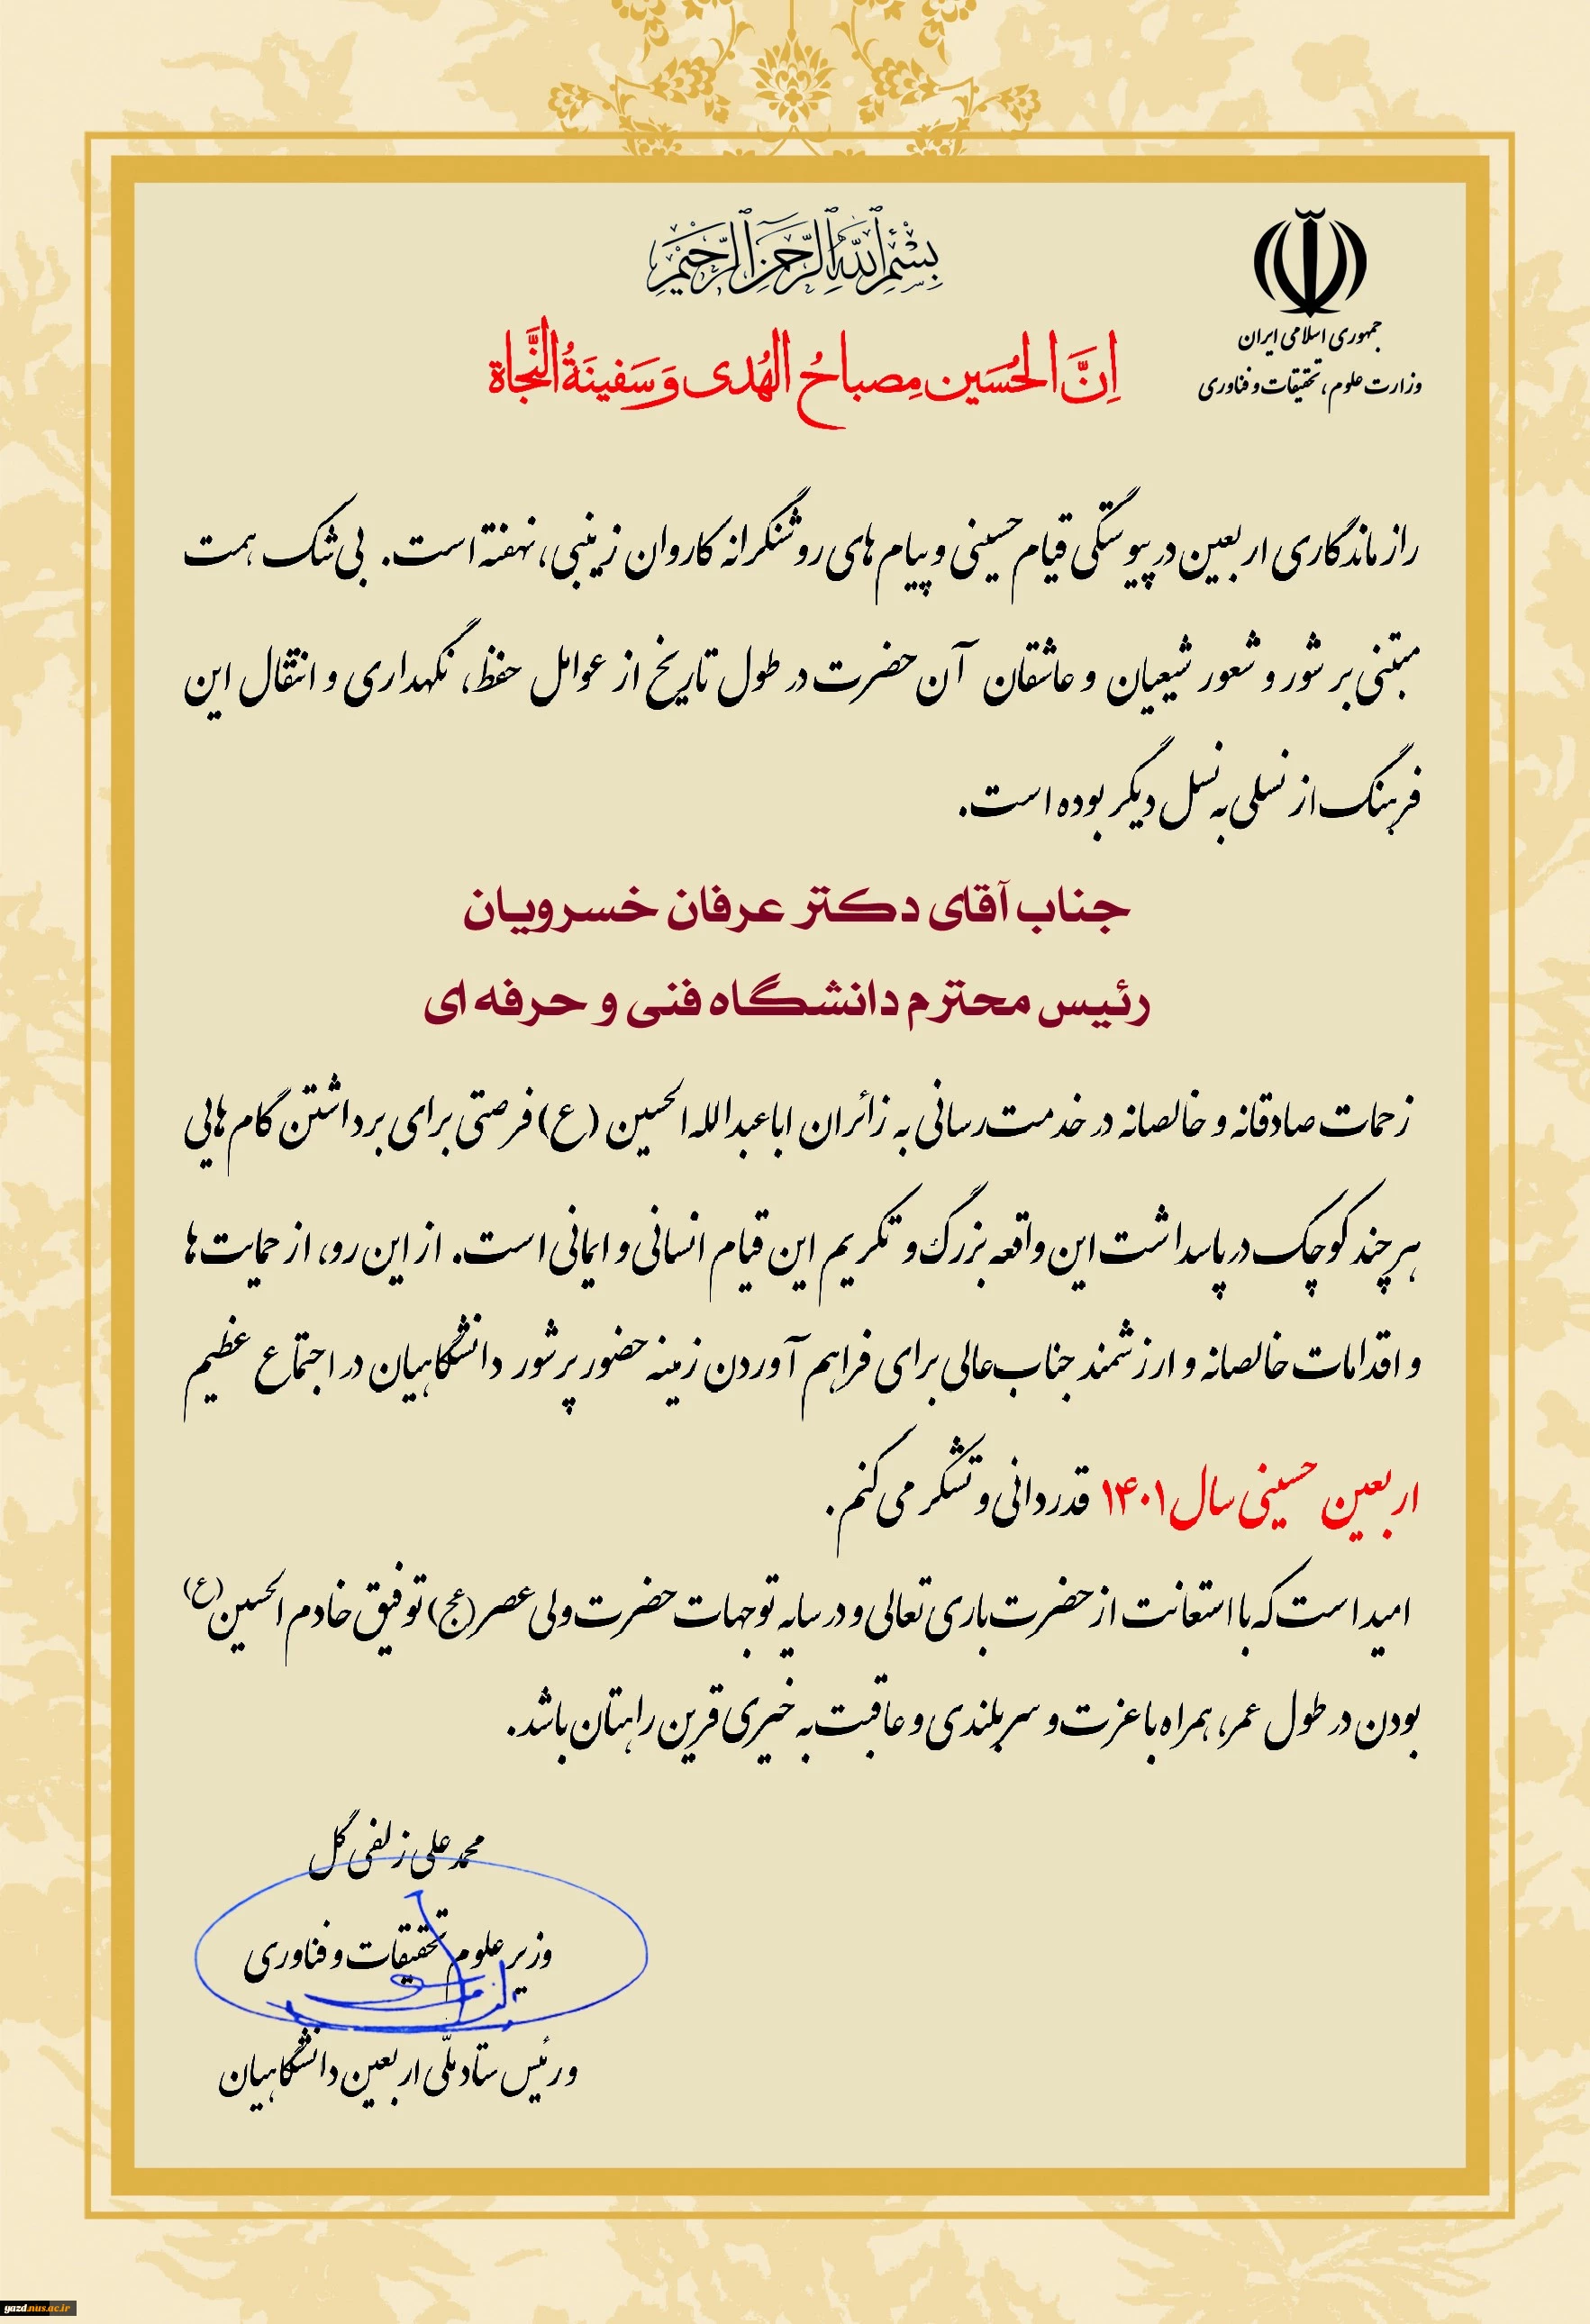 بِسْمِ اللَّهِ الرَّحْمَنِ الرَّحِيمِ
جمهوری اسلامی ایران
وزارت علوم، تحقیقات و فناوری
اِنَّ الحُسَین مِصباحُ الهُدی وَ سَفینَةُ النَّجاة
راز ماندگاری اربعین در پیوستگی قیام حسینی و پیام های روشنگرانه کاروان زینبی، نهفته است. بی شک همت
مبتنی بر شور و شعور شیعیان و عاشقان آن حضرت در طول تاریخ از عوامل حفظ، نگهداری و انتقال این
فرهنگ از نسلی به نسل دیگر بوده است.
جناب آقای دکتر عرفان خسرویان
رئیس محترم دانشگاه فنی و حرفه ای
زحمات صادقانه و خالصانه در خدمت رسانی به زائران اباعبدالله الحسین (ع) فرصتی برای برداشتن گام هایی
هر چند کوچک در پاسداشت این واقعه بزرگ و تکریم این قیام انسانی و ایمانی است. از این رو، از حمایت ها
و اقدامات خالصانه و ارزشمند جناب عالی برای فراهم آوردن زمینه حضور پرشور دانشگاهیان در اجتماع عظیم
اربعین حسینی سال ۱۴۰۱ قدردانی و تشکر می کنم.
امید است که با استعانت از حضرت باری تعالی و در سایه توجهات حضرت ولی عصر (عج) توفیق خادم الحسین (ع)
بودن در طول عمر، همراه با عزت و سربلندی و عاقبت به خیری قرین راهتان باشد.
محمد علی زلفی گل
وزیر علوم تحقیقات و فناوری
و رئیس ستاد ملّی اربعین دانشگاهیان
yazd.nus.ac.ir